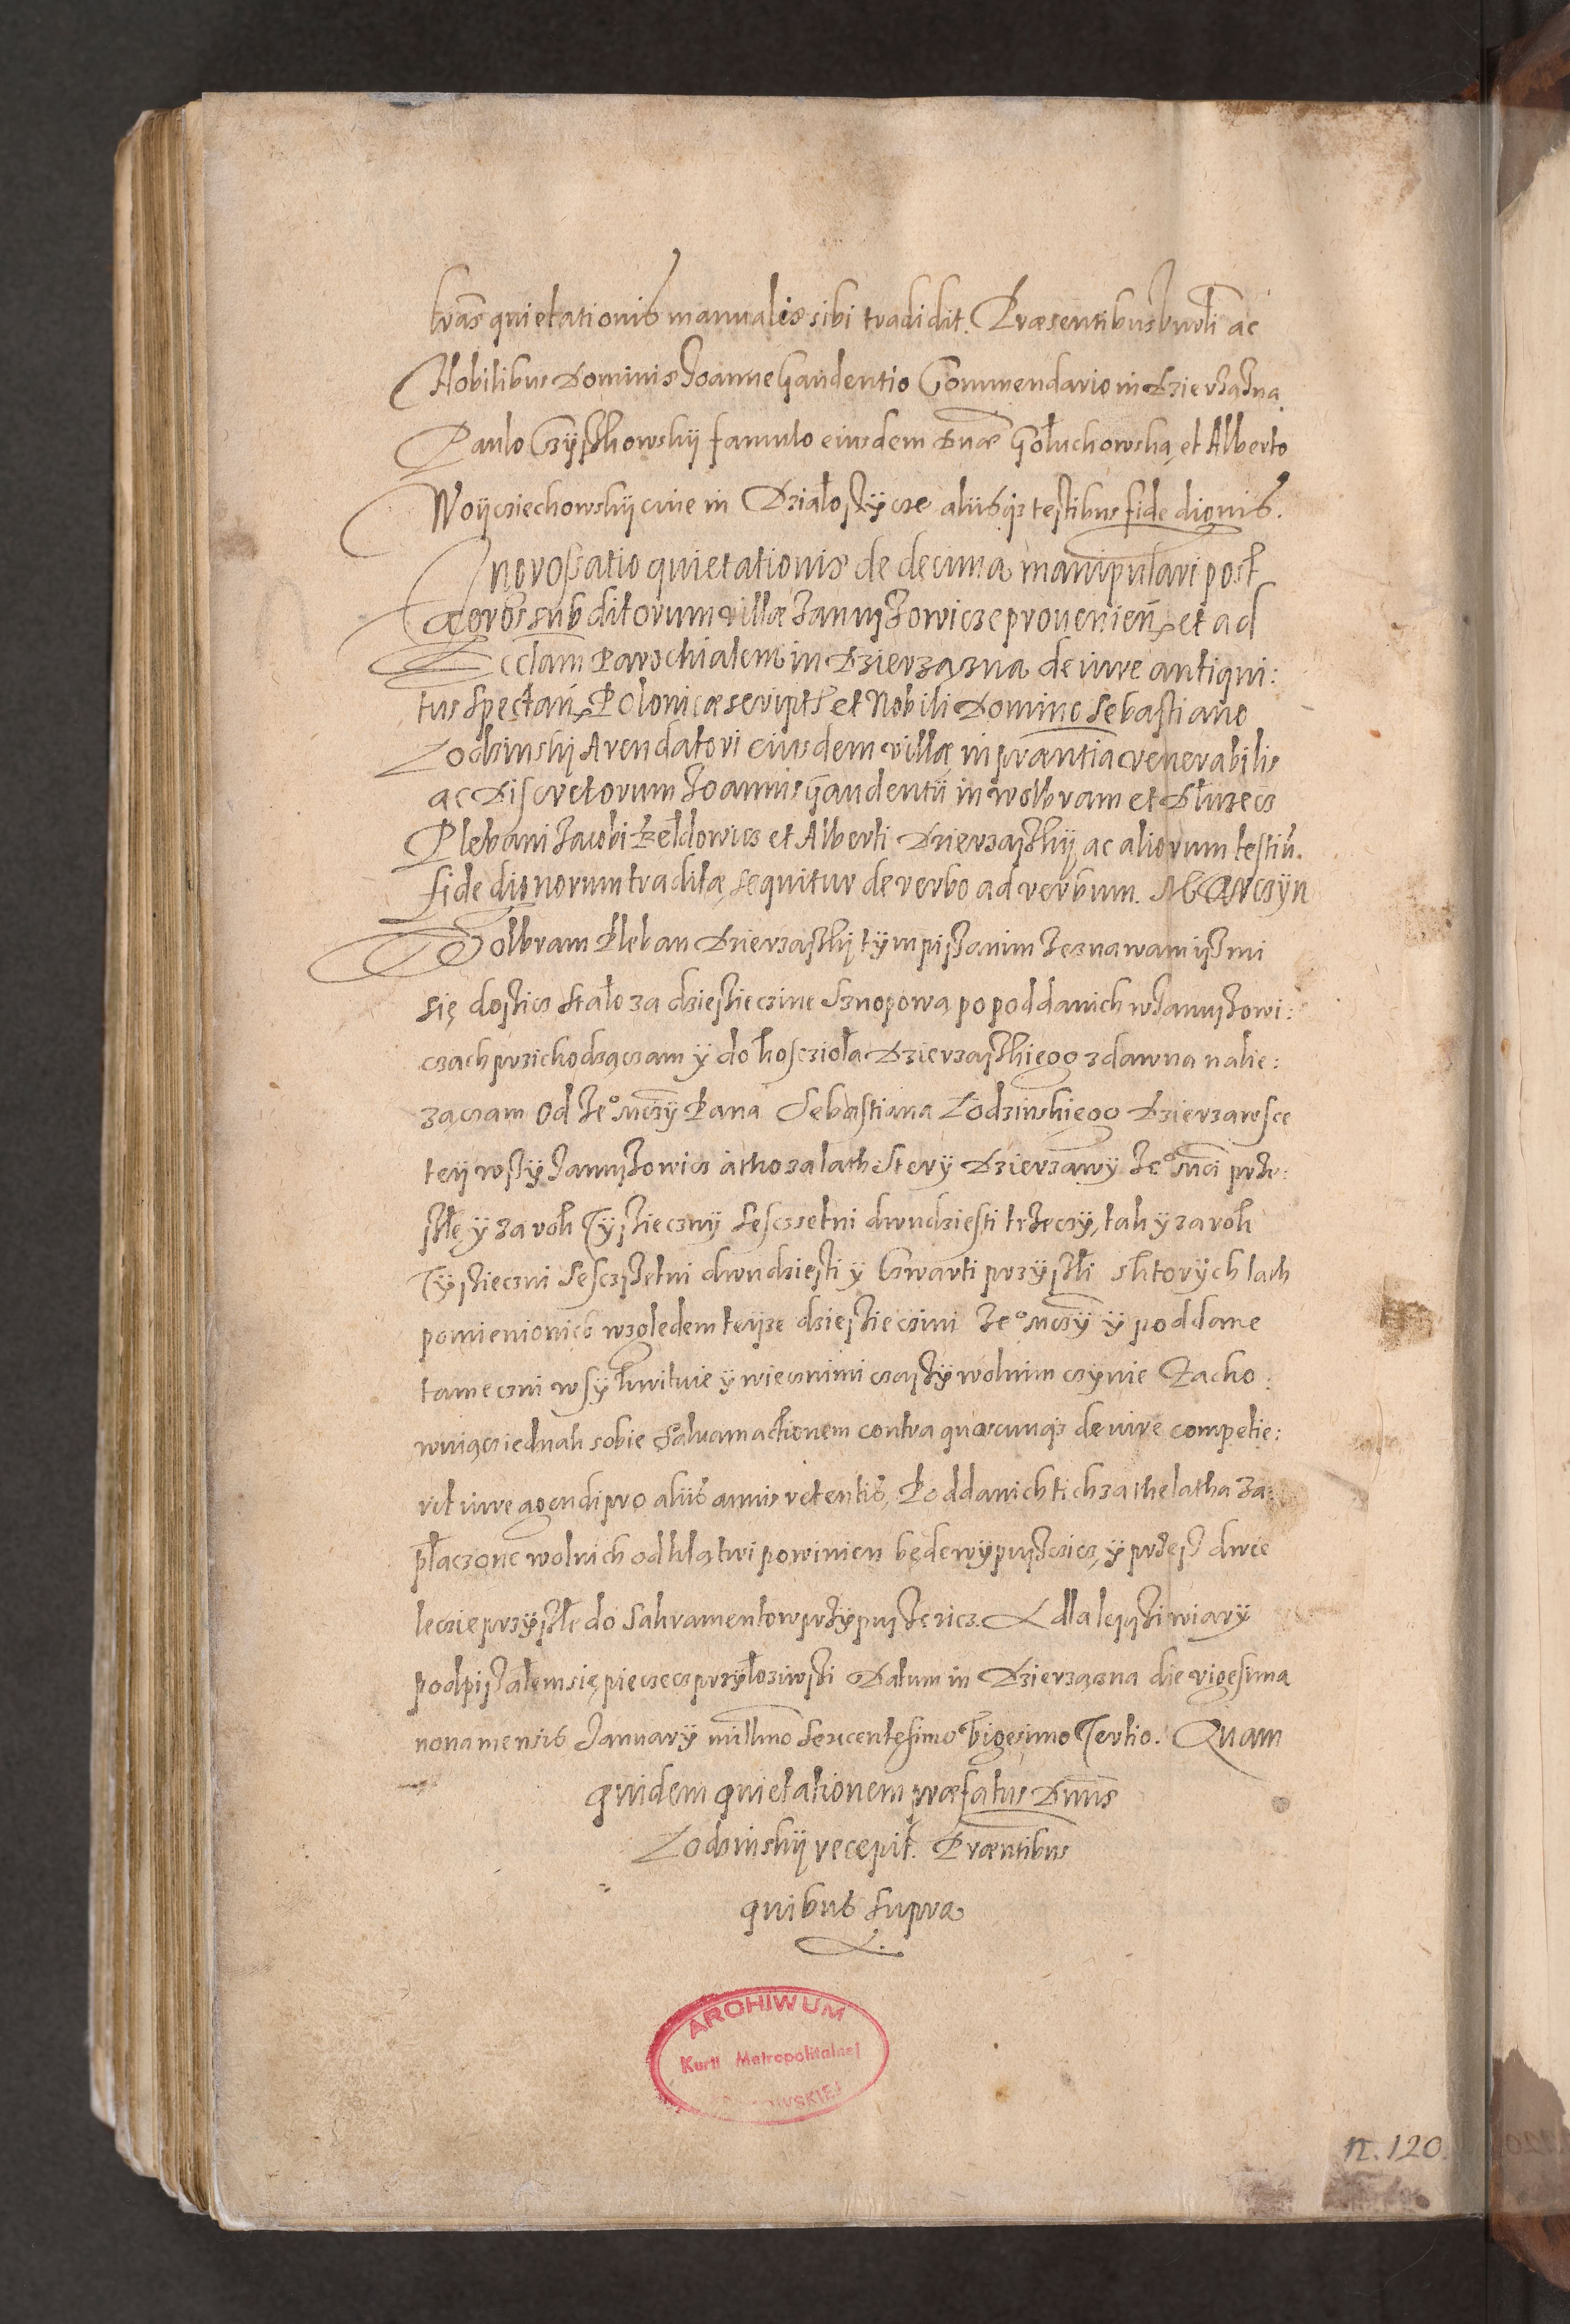 tras quietationis manualis sibi tradidit. Præsentibus ac
Nobilibus Dominis Joanne Gaudentio Commendario in Dzierżążna
Paulo Czÿszkowskij famulo eiusdem Dnæ Gołuchowska, et Alberto
Woijciechowskij ciue in Działoszÿcze aliisqz testibus fide dignis.
Ingrossatio quietationis de decima manipulari post
agros subditorum villæ Januszowicze prouenien. et ad
Ecclam Parochialem in Dzierzązna de iure antiqui:
tus spectan. Polonicæ script. et Nobili Domino Sebastiano
Lodzinskij Arendatori eiusdem villæ in præntia venerabilis
ac Discretorum Joannis Gaudentii in Wolbram et Dłuzecz
Plebani Jacobi Bełdowicz et Alberti Dzierzaszkij ac aliorum testiu.
fide dignorum traditæ, sequitur de verbo ad verbum. Marczÿn
Wolbram Pleban Dzierzaszkij tÿm piszanim zeznawam isz mi
się doszicz stało za dziesziecine snopową po poddanich w Januszowi:
czach przichodzączam ÿ do koscioła Dzierzaszkiego zdawna nalie:
zączam od Jeº Mczÿ Pana Sebastiana Lodzinskiego Dzierzawsce
teij wszÿ Januszowicz a tho za lath sterÿ Dzierzawÿ Jeº Mci prze:
szłe, ÿ za rok Tÿsziecznij sescsetni dwudziesti trzeczÿ, tak ÿ za rok
Tÿszieczni sescszetni dwudziesti ÿ Czwarti przÿszłi sktorÿch lath
pomienionich wzgledem teijze dzieszieczini Jeº Mczÿ ÿ poddane
tameczni wsÿ kwituie ÿ wiecznimi czaszÿ wolnim czÿnie Zacho:
wuiącz iednak sobie saluam actionem contra quoscunqz de iure competie:
rit iure agendi pro aliis annis retentis, Poddanich tich za the latha za:
płaczone wolnich od klątwi powinien będe wÿpuszczicz, ÿ przesz dwie
lecie przÿszłe do Sakramentow przÿpuszczicz. A dla lepszi wiarÿ
podpiszałem się, pieczecz przÿłoziwszi Datum in Dzierzazna die vigesima
nona mensis Januarÿ millmo sexcentesimo Vigesimo Tertio. Quam
quidem quietationem præfatus Dnus
Lodzinskij recepit. Præntibus
quibus supra
ARCHIWUM
Kurii Metropolitalnej
n. 120.